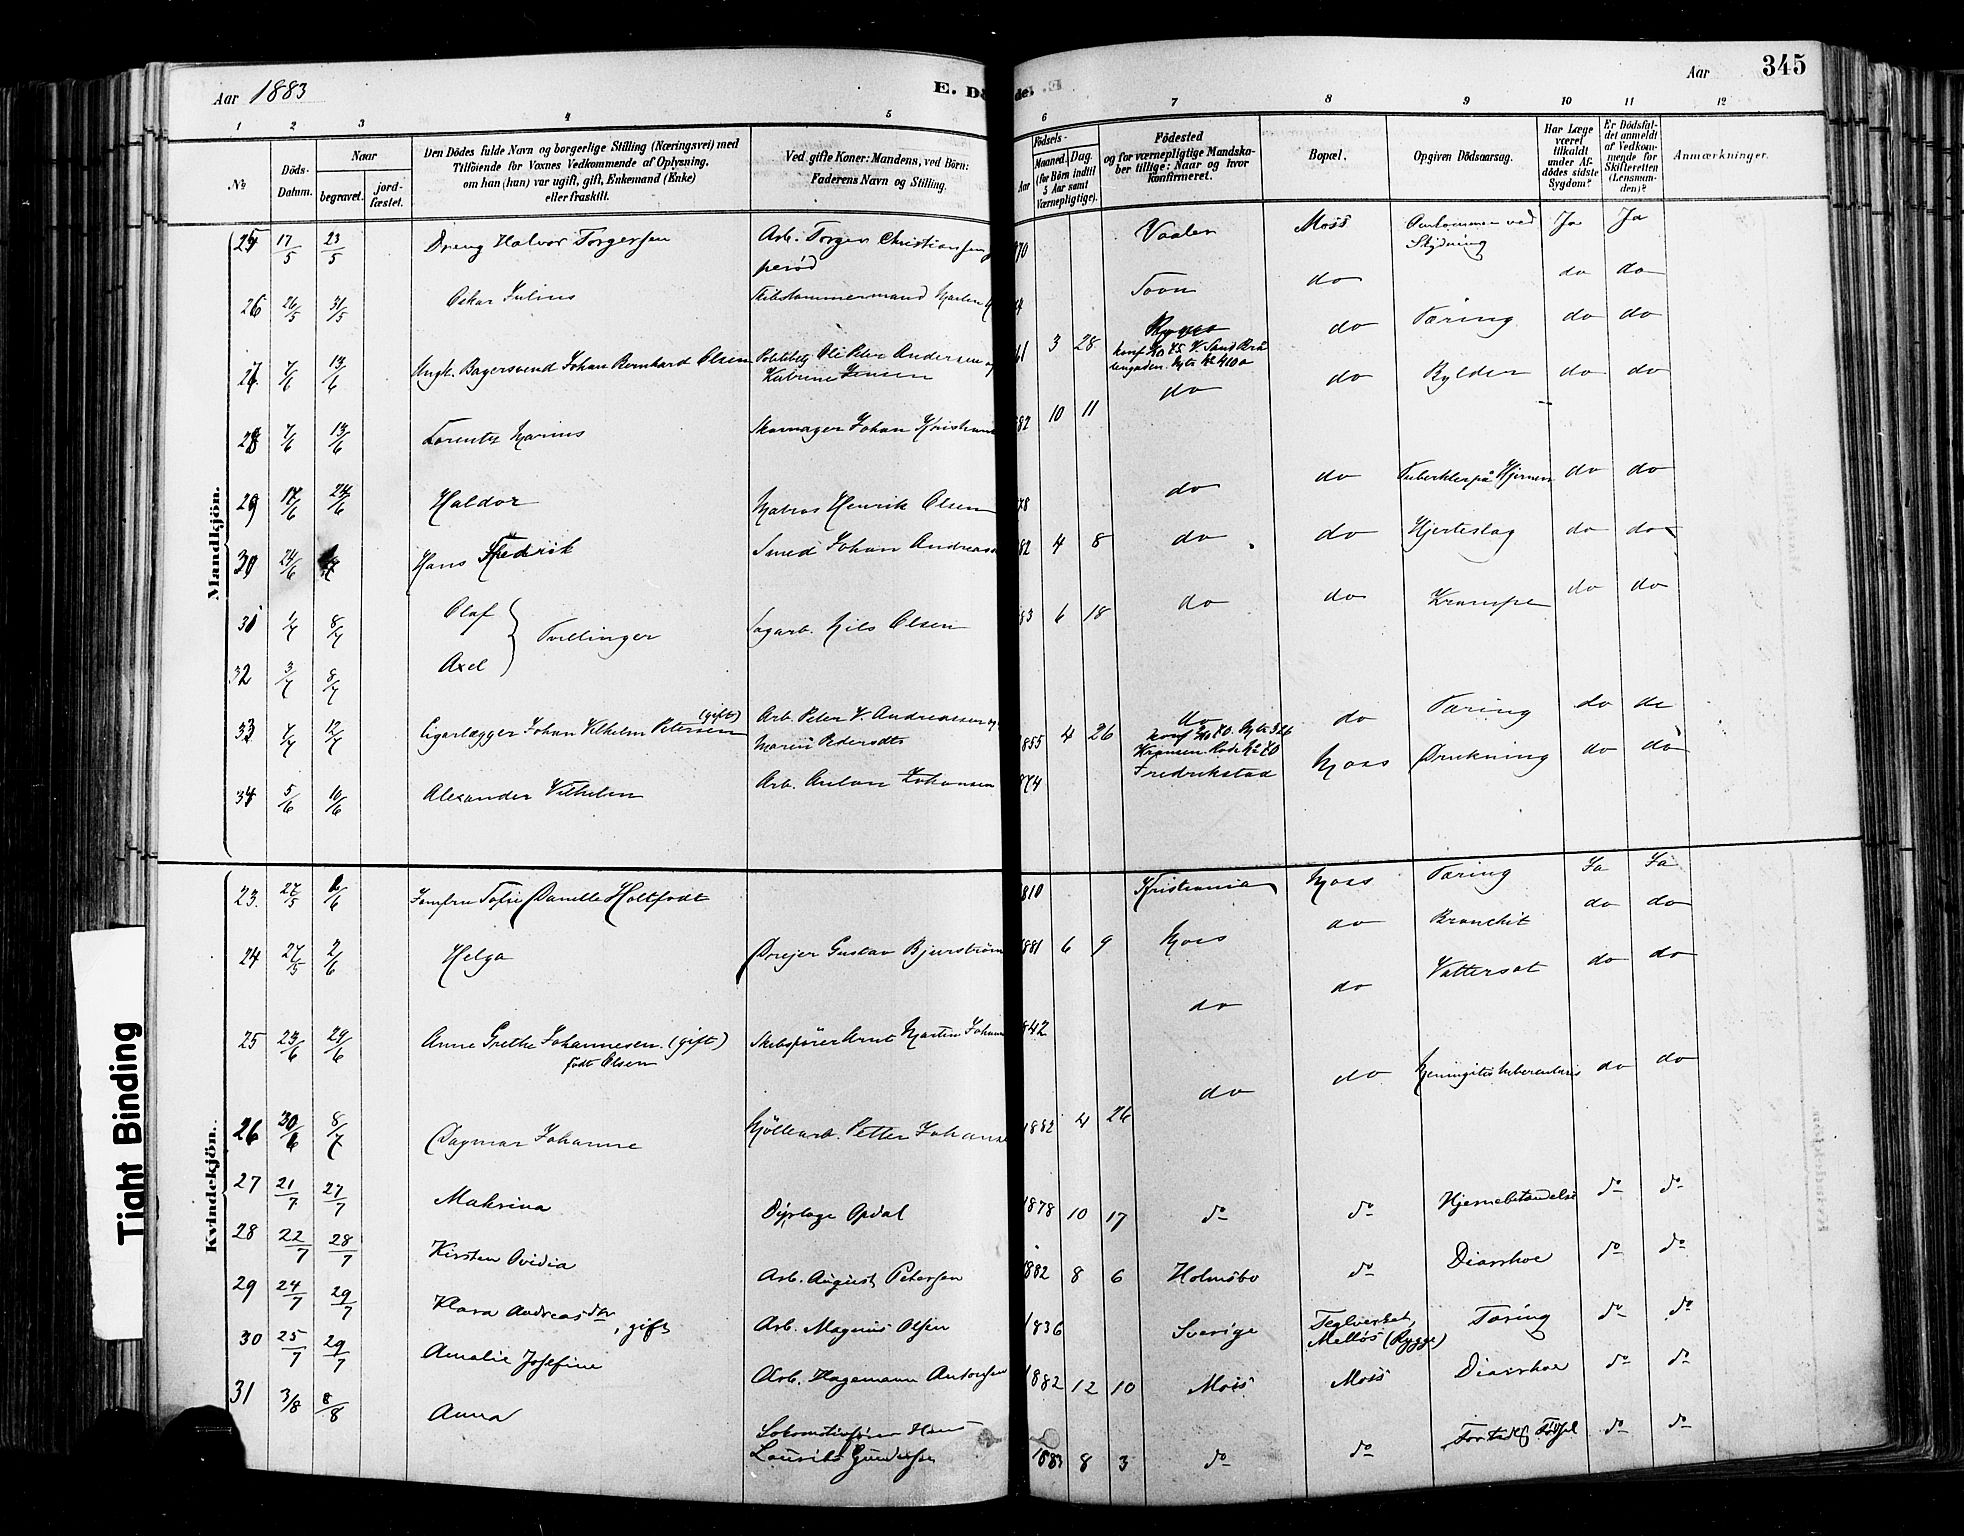 Aar 1883
E. Dø
de. E.
Aar 345
1 2 3 4 5 6 7 8 9 10 11 12
№
Døds-Datum.
Naar
begravet.
jord-fæstet.
Den Dødes fulde Navn og borgerlige Stilling (Næringsvei) med
Tilføiende for Voxnes Vedkommende af Oplysning,
om han (hun) var ugift, gift, Enkemand (Enke)
eller fraskilt.
Ved gifte Koner: Mandens, ved Børn:
Faderens Navn og Stilling.
Fødsels-
Aar
Maaned. Dag.
(for Børn indtil
5 Aar samt
Værnepligtige).
Fødested
og for værnepligtige Mandska-
ber tillige: Naar og hvor
konfirmeret.
Bopæl.
Opgiven Dødsaarsag.
Har Læge
været
tilkaldt
under Af-
dødes sidste
Sygdom?
Er Dødsfal-
det anmeldt
af Vedkom-
mende for
Skifteretten
(Lensman-
den)?
Anmærkninger.
Mandkjön.
25 17/5 23/5 Dreng Halvor Torgersen Arb. Torger Christiansen 70 Vaaler Moss Omkommen ved Ja Ja
perød Stydning
26 26/5 31/5 Oskar Julius Skibstømmermand Martin Soon do do do
27 7/6 13/6 Ungk. Bagersvend Johan Bernhard Olsen Politibetj. Ole Peter Andersen og 61 3 28 Rygge do Tæring do do
Katrine Jensen
28 7/6 13/6 Lorentz Marius Skomager Johan Kristians 82 10 11 do do do do
29 17/6 24/6 Haldor Matros Henrik Olsen 78 do do Tuberkler på Hjernen do do
30 24/6 Hans Fredrik Smed Johan Andreas 82 4 8 do do Hjerteslag do do
31 1/7 8/7 Olaf Tvillinger Sagarb. Nils Olsen 83 6 18 do do Krampe do do
32 3/7 8/7 Axel
33 7/7 12/7 Cigarlægger Johan Vilhelm Petersen (gift) Arb. Peter V. Andreassen og 1855 4 26 do do Tæring do do
Maren Pedersdtr
34 5/6 10/6 Alexander Vilhelm Arb. Anton Johansen 874 Fredrikstad Moss Drukning do do
Kvindekjön.
23. 27/5 1/6 Jomfru Sofie Danelle Holtfodt 810 Kristiania Moss Tæring Ja Ja
24 27/5 2/6 Helga Drejer Gustav Bjurstrøm 881 6 9 Moss do Bronchit do do
25 23/6 29/6 Anne Grethe Johannesen. (gift) Skibsfører Arnt Martin Johan 842 do do Vattersot do do
født Olsen
26 30/6 8/7 Dagmar Johanne Møllearb. Petter Johans 1882 4 26 do do Meningitis tuberculosis do do
27 21/7 27/7 Makrina Dyrlæge Opdal 1878 10 17 do do Hjernebetændelse do do
28 22/7 28/7 Kirsten Ovidia Arb. August Petersen 1882 8 6 Holmsbo do Diarrhoe do do
29 24/7 29/7 Klara Andreasdtr, gift Arb. Magnus Olsen 1836 Sverige Teglverket, Tæring do do
Melløs (Rygge)
30 25/7 29/7 Amalie Josefine Arb. Hagemann Antonsen 1882 12 10 Moss Moss Diarrhoe do do
31 3/8 8/8 Anna Lokomotivfører Hans 1883 8 3 do do For tidlig Fødsel do do
Lauritz Gundersen
Tight Binding